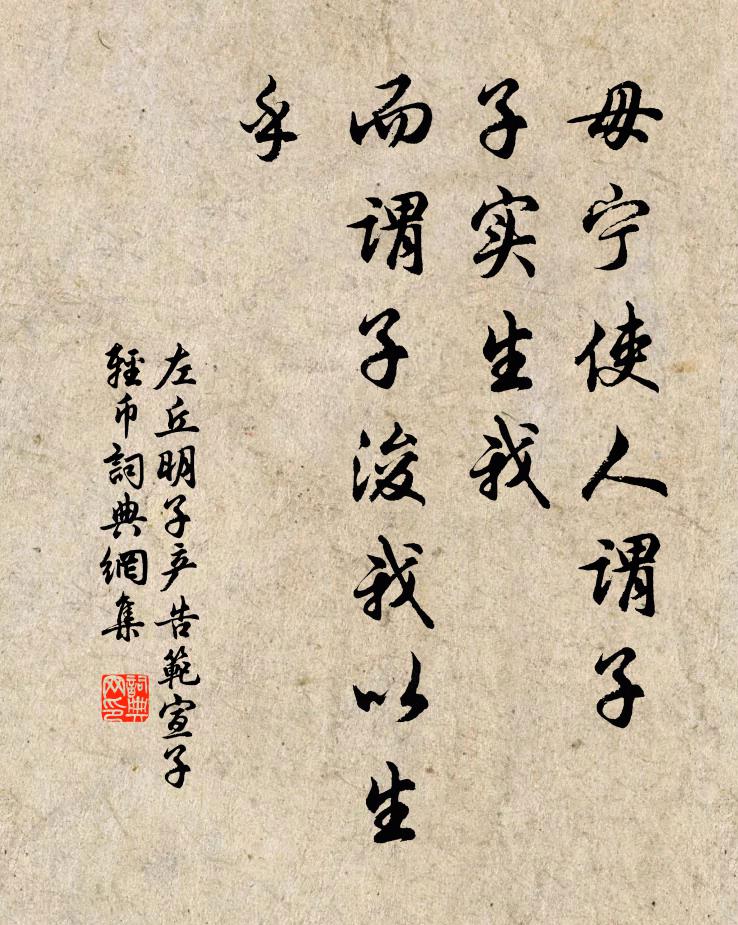 毋宁使人谓子
子实生我
而谓子浚我以生
乎
左丘明子产告範宣子
輕币詞典網集
詞典
网印